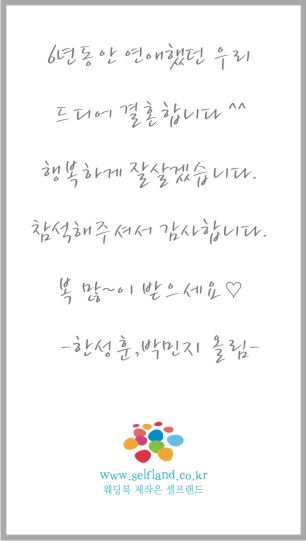 6년동안 연애했던 우리
드디어 결혼합니다 ^^
행복하게 잘살겠습니다.
참석해주셔서 감사합니다.
복 많~이 받으세요♡
-한성훈,박민지 올림-
www.selfland.co.kr
웨딩북 제작은 셀프랜드